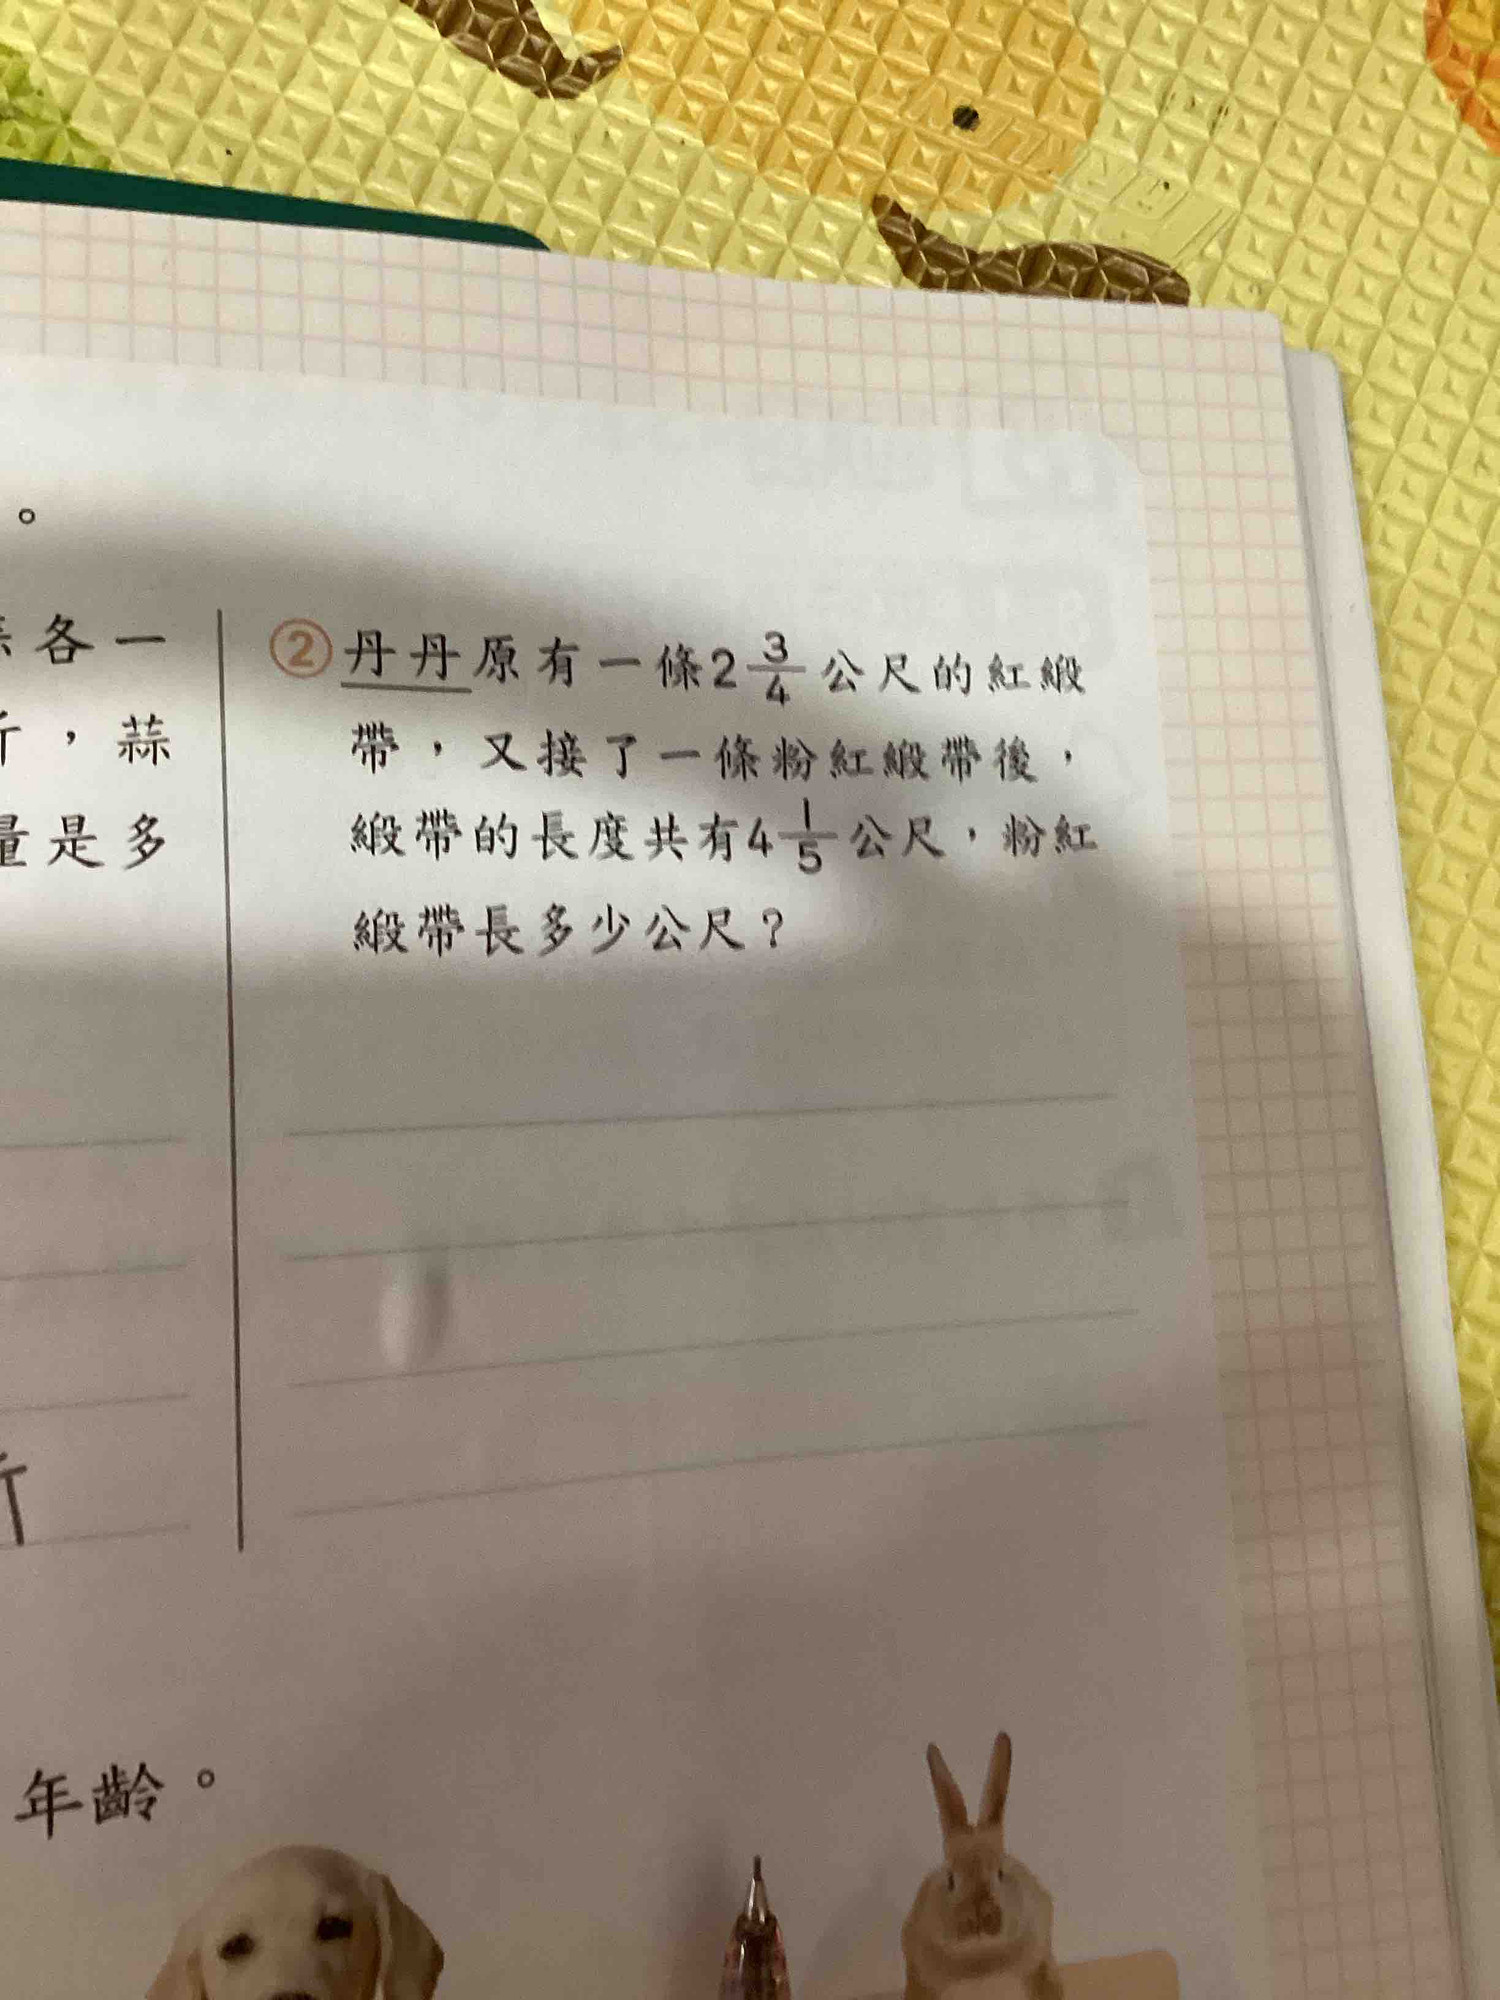 。
各一
②丹丹原有一條2 3/4 公尺的紅緞
，蒜
帶，又接了一條粉紅緞帶後，
量是多
緞帶的長度共有4 1/5 公尺，粉紅
緞帶長多少公尺？
年齡。